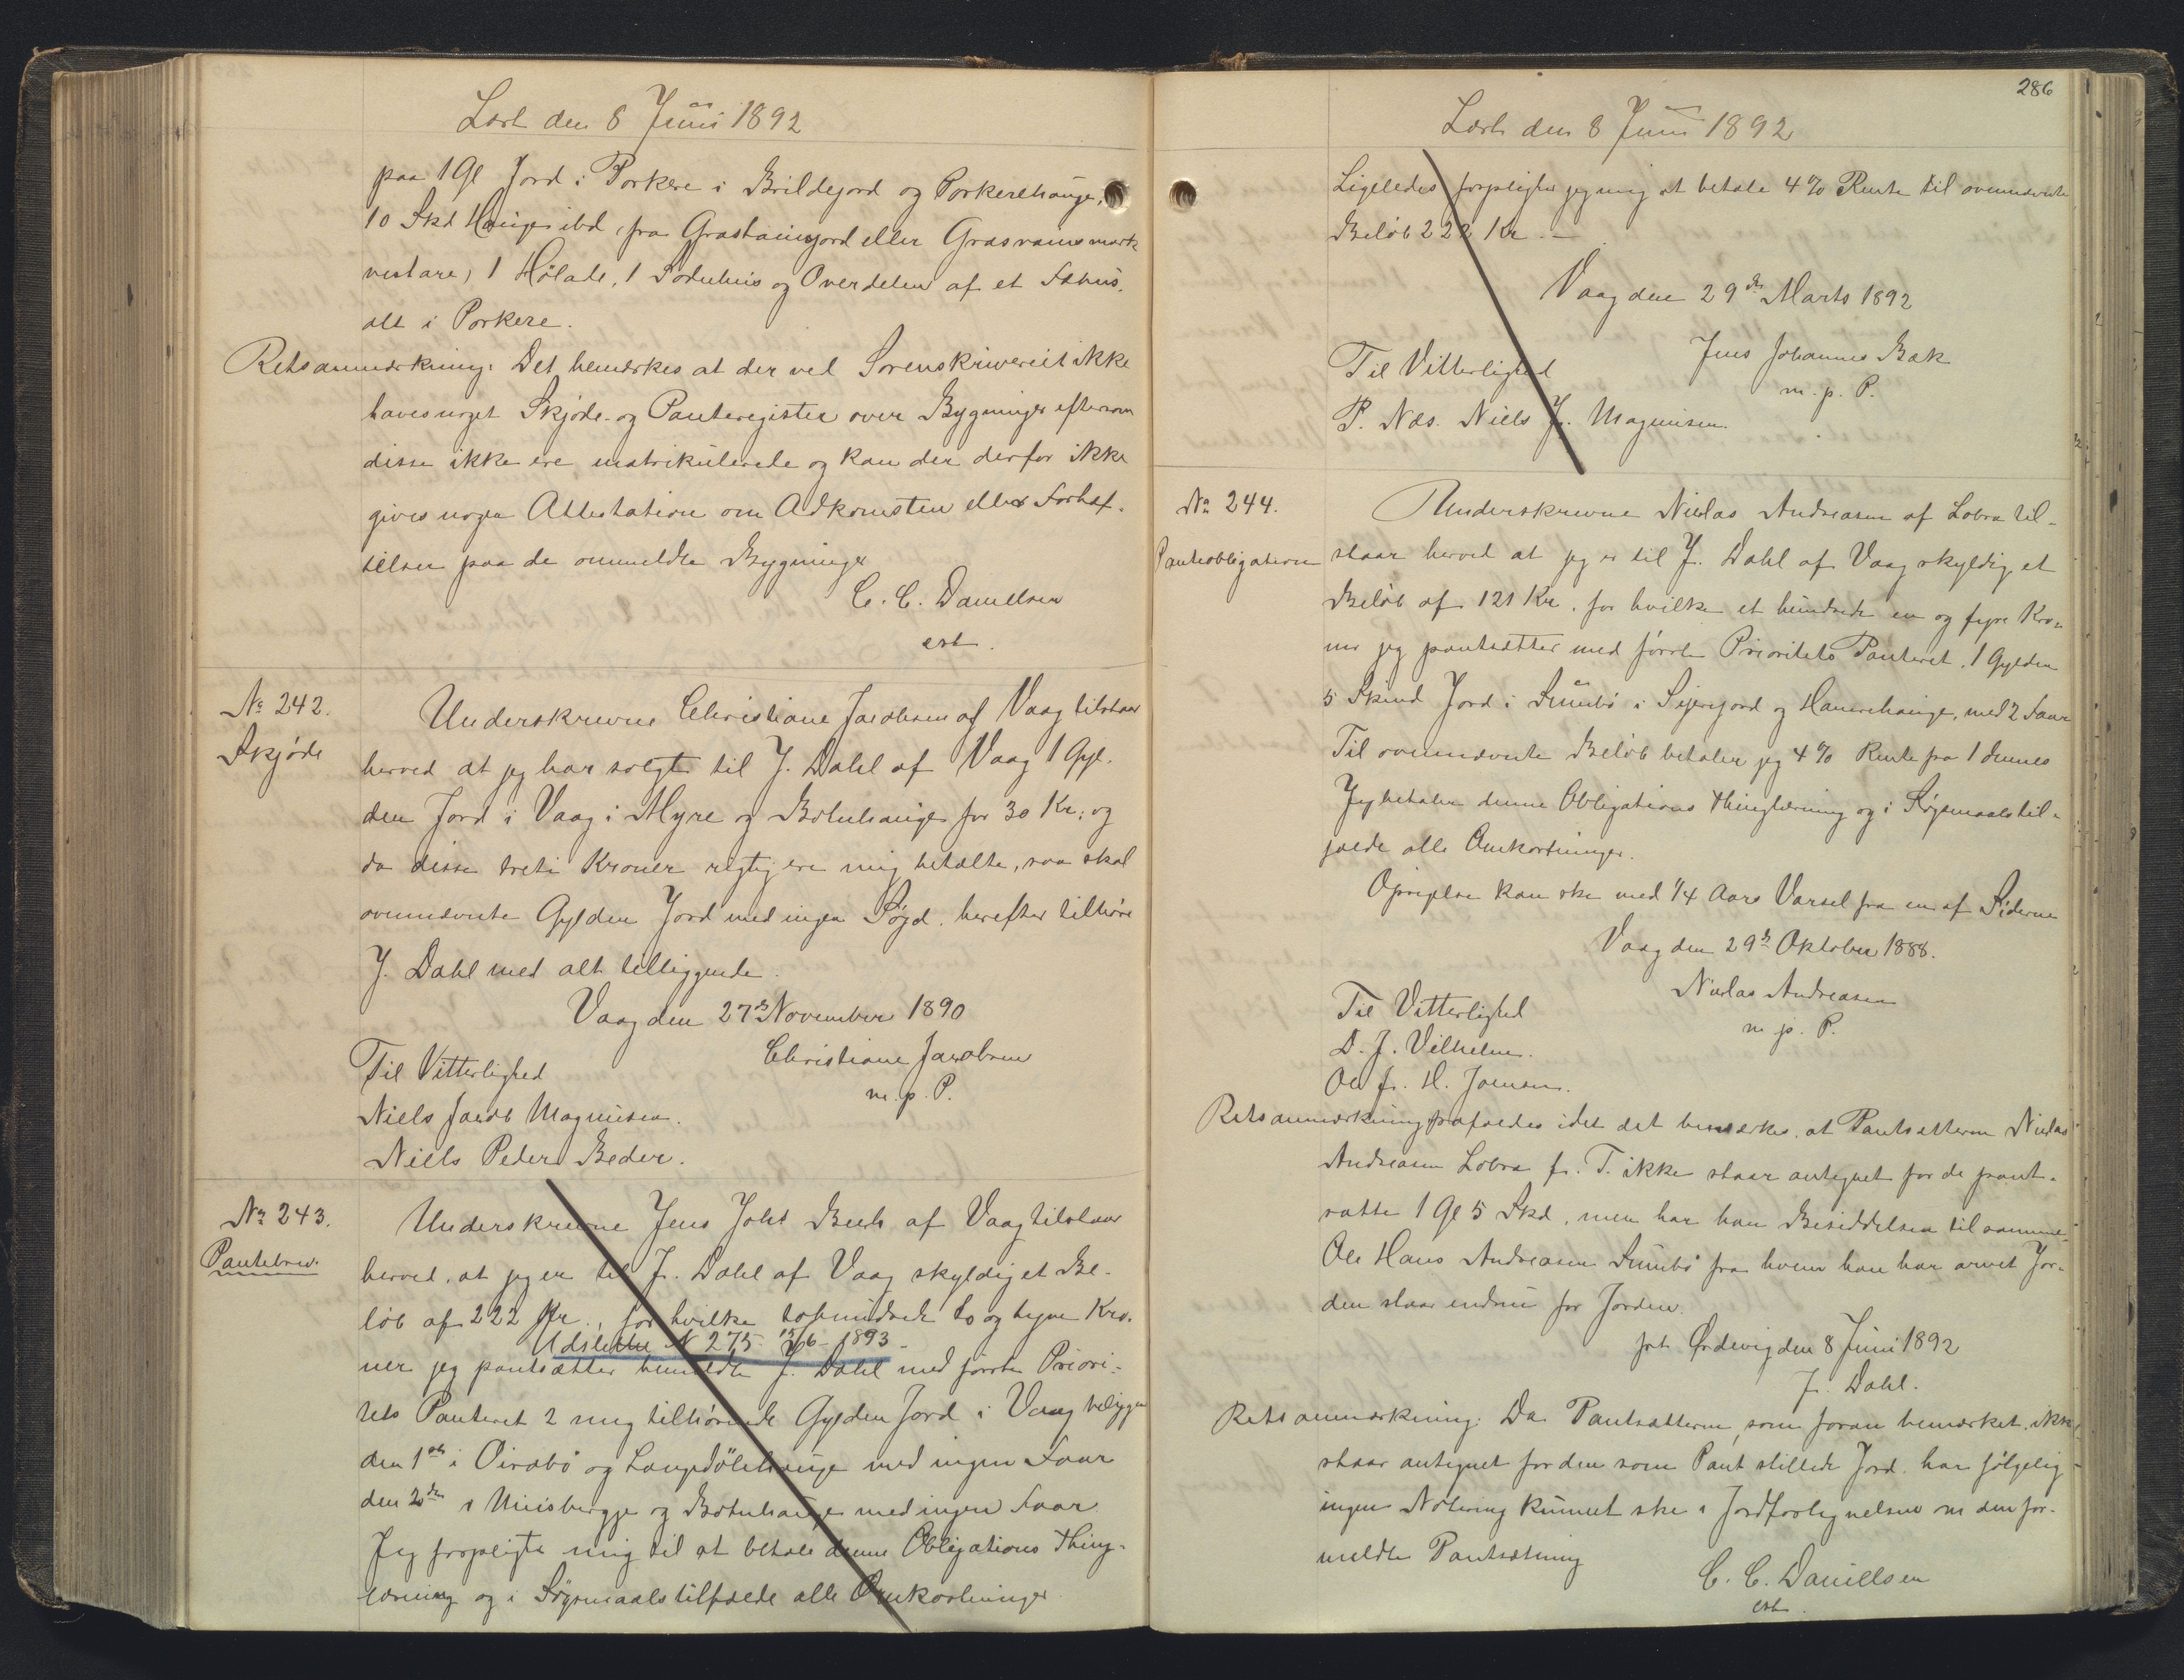 Læst den 8 Juni 1892
paa 1 Gl Jord i Porkere i Brildejord og Porkerehauge,
10 Skd Hauge ibd, fra Grastainsjord eller Grasvansmark
vestare, 1 Hølade, 1 Sodnhus og Overdelen af et Fæhus.
alt i Porkere.
Retsanmærkning: Det bemærkes at der ved Sorenskriveriet ikke
haves noget Skjøde- og Panteregister over Bygninger eftersom
disse ikke ere matrikulerede og kan der derfor ikke
gives nogen Attestation om Adkomsten eller Forhæf-
telser paa de ommeldte Bygninger
C. C. Danielsen
cst.
No 242.
Skjøde
Underskrevne Christiane Jacobsen af Vaag tilstaar
herved at jeg har solgt til J. Dahl af Vaag 1 Gyl-
den Jord i Vaag i Myre og Botnhauge for 30 Kr; og
da disse treti Kroner rigtig ere mig betalte, saa skal
ovennævnte Gylden Jord med ingen Søjd. herefter tilhøre
J. Dahl med alt tilliggende.
Vaag den 27de November 1890
Christiane Jacobsen
m. p. P.
Til Vitterlighed
Niels Jacob Magnusen.
Niels Peder Beder.
No 243.
Pantebrev.
Underskrevne Jens Johs Beck af Vaag tilstaar
herved, at jeg er til J. Dahl af Vaag skyldig et Be-
løb af 222 Kr., for hvilke tohundrede to og tyve Kro-
Udslettet N 275 15/6 1893
ner jeg pantsætter bemeldte J. Dahl med første Priori-
tets Panteret 2 mig tilhørende Gylden Jord i Vaag beliggen
den 1ste i Oirabø og Langedølehauge med ingen Faar
den 2den i Miisbergge og Botnhauge med ingen Faar
Jeg forpligte mig til at betale denne Obligations Thing-
læsning og i Søgsmaalstilfælde alle Omkostninger
286
Læst den 8 Juni 1892
Ligeledes forpligter jeg mig at betale 4% Rente til ovennævnte
Beløb 222 Kr.
Vaag den 29de Marts 1892
Jens Johannes Bæk
m. p. P.
Til Vitterlighed
P. Næs. Niels J. Magnusen.
No 244.
Panteobligation
Underskrevne Niclas Andreasen af Lobra til-
staar herved at jeg er til J. Dahl af Vaag skyldig et
Beløb af 121 Kr. for hvilke et hundrede en og tyve Kro-
ner jeg pantsætter med første Prioritets Panteret. 1 Gylden
5 Skind Jord i Sumbø i Sijerejord og Hamrehauge, med 2 Faar
Til ovennævnte Beløb betaler jeg 4% Rente fra 1 dennes
Jeg betaler denne Obligations thinglæsning og i Søgsmaalstil-
fælde alle Omkostninger.
Opsigelse kan ske med 1/4 Aars Varsel fra en af Siderne
Vaag den 29de Oktober 1888.
Niclas Andreasen
m. p. P.
Til Vitterlighed
D. J. Vilhelm.
Ole fr. H. Joensen.
Retsanmærkning frafaldes idet det bemærkes, at Pantsætteren Niclas
Andreasen Lobra f. T. ikke staar antegnet for de pant-
satte 1 Gl 5 Skd, men har han Besiddelsen til samme
Ole Hans Andreasen Sumbø fra hvem han har arvet Jor-
den staar endnu for Jorden.
pt. Ørdevig den 8 Juni 1892
J. Dahl.
Retsanmærkning: Da Pantsætteren, som foran bemærket, ikke
staar antegnet for den som Pant stillede Jord. har følgelig
ingen Notering kunnet ske i Jordfortegnelsen om den for-
meldte Pantsætning
C. C. Danielsen
cst.